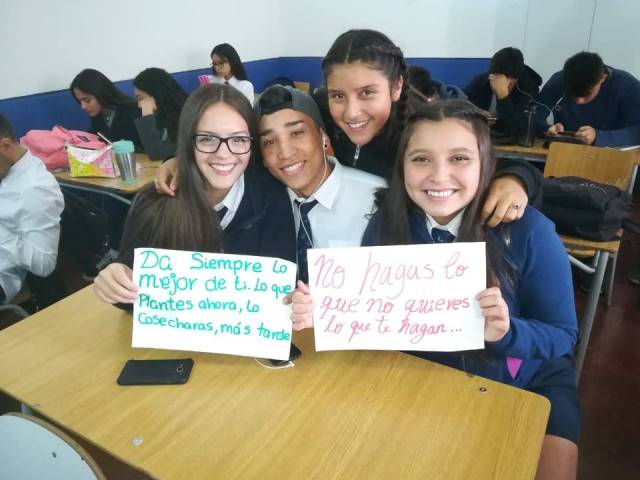 Da Siempre lo
mejor de ti. lo que
Plantes ahora, lo
Cosecharas, más tarde
No hagas lo
que no quieres
lo que te hagan...